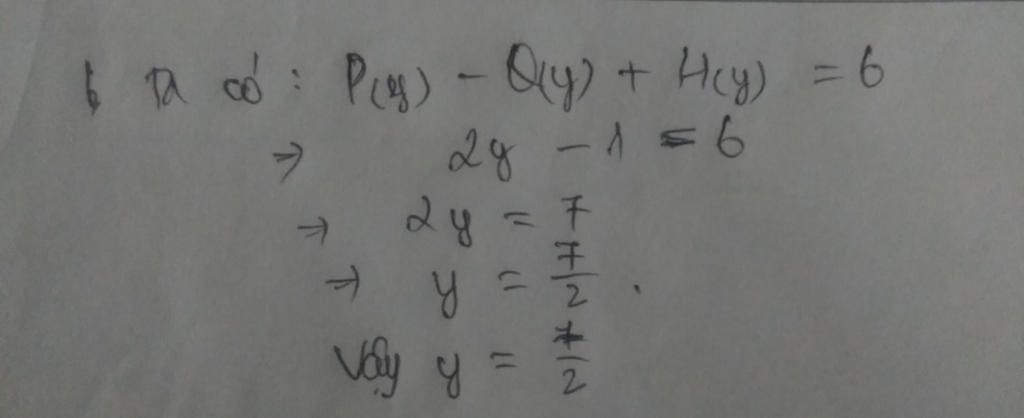 b Ta có : P(y) - Q(y) + H(y) = 6
⇒ 2y - 1 = 6
⇒ 2y = 7
⇒ y = 7/2 .
Vậy y = 7/2